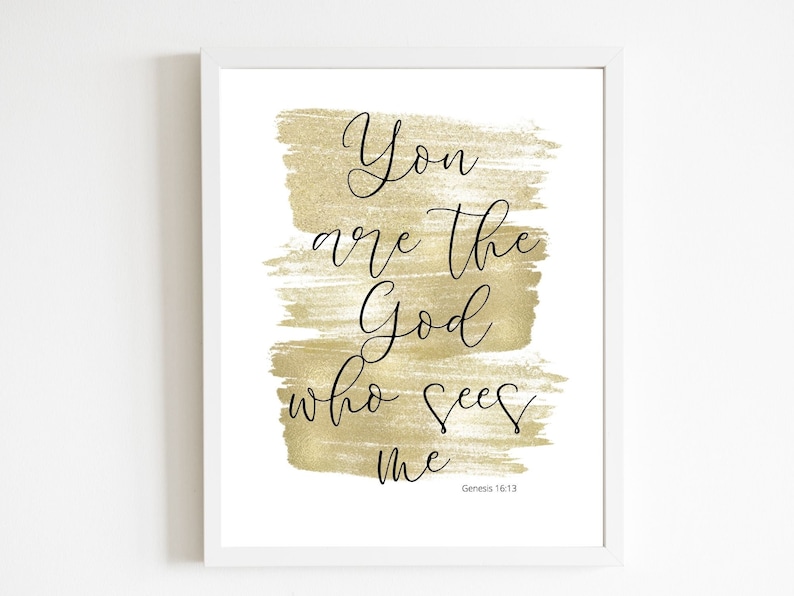 You
are the
God
who sees
me
Genesis 16:13